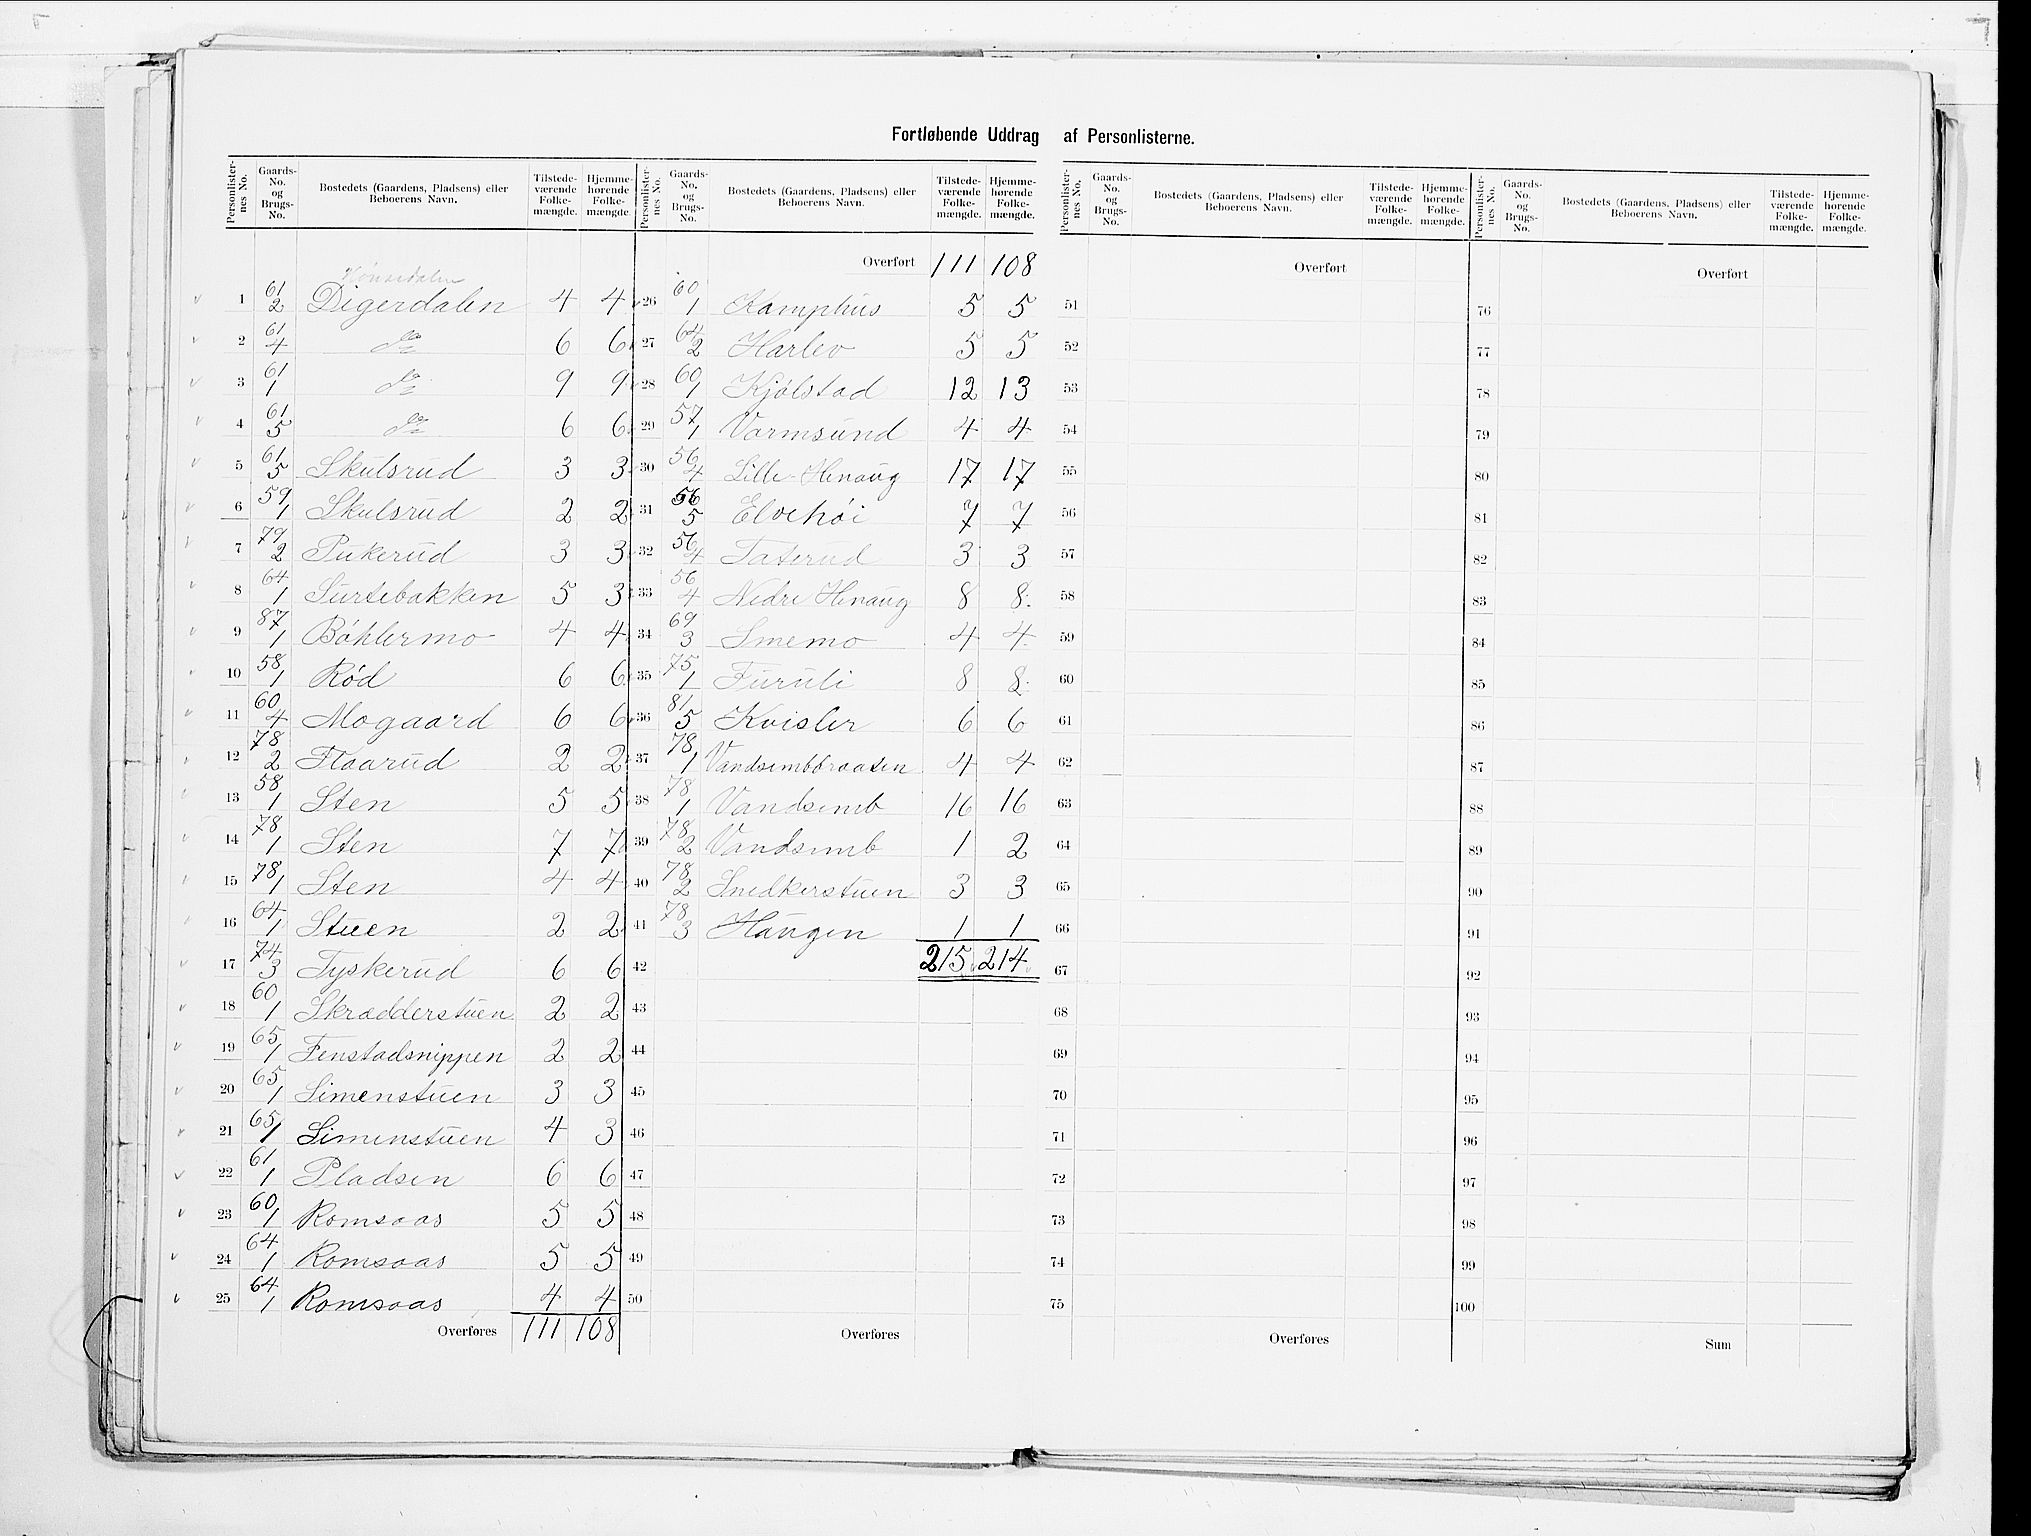 Fortløbende Uddrag af Personlisterne.
Personlister-nes No. | Gaards-No. og Brugs-No. | Bostedets (Gaardens, Pladsens) eller Beboerens Navn. | Tilstede-værende Folke-mængde. | Hjemme-hørende Folke-mængde.
Hønsedalen
1 61/2 Digerdalen 4 4
2 61/4 do 6 6
3 61/1 do 9 9
4 61/5 do 6 6
5 61/5 Skulsrud 3 3
6 59/1 Skulsrud 2 2
7 79/2 Pukerud 3 3
8 64/1 Surtebakken 5 3
9 87/1 Bøhlermo 4 4
10 58/1 Rød 6 6
11 60/4 Mogaard 6 6
12 78/2 Flaarud 2 2
13 58/1 Sten 5 5
14 78/1 Sten 7 7
15 78/1 Sten 4 4
16 64/1 Stuen 2 2
17 74/3 Tyskerud 6 6
18 60/1 Skrædderstuen 2 2
19 65/1 Fenstadsnippen 2 2
20 65/1 Simenstuen 3 3
21 65/1 Simenstuen 4 3
22 61/1 Pladsen 6 6
23 60/1 Romsaas 5 5
24 64/1 Romsaas 5 5
25 64/1 Romsaas 4 4
Overføres 111 108
Personlister-nes No. | Gaards-No. og Brugs-No. | Bostedets (Gaardens, Pladsens) eller Beboerens Navn. | Tilstede-værende Folke-mængde. | Hjemme-hørende Folke-mængde.
Overført 111 108
26 60/1 Kamphus 5 5
27 64/2 Harlev 5 5
28 60/1 Kjølstad 12 13
29 57/1 Vormsund 4 4
30 56/4 Lille-Henaug 17 17
31 56/5 Elvehøi 7 7
32 56/4 Taterud 3 3
33 56/4 Nedre Henaug 8 8
34 69/3 Smemo 4 4
35 75/1 Furuli 8 8
36 81/5 Kvisler 6 6
37 78/1 Vandsembbraaten 4 4
38 78/1 Vandsemb 16 16
39 78/2 Vandsemb 1 2
40 78/2 Snedkerstuen 3 3
41 78/3 Haugen 1 1
42 215 214
43
44
45
46
47
48
49
50
Overføres
Personlister-nes No. | Gaards-No. og Brugs-No. | Bostedets (Gaardens, Pladsens) eller Beboerens Navn. | Tilstede-værende Folke-mængde. | Hjemme-hørende Folke-mængde.
Overført
51
52
53
54
55
56
57
58
59
60
61
62
63
64
65
66
67
68
69
70
71
72
73
74
75
Overføres
Personlister-nes No. | Gaards-No. og Brugs-No. | Bostedets (Gaardens, Pladsens) eller Beboerens Navn. | Tilstede-værende Folke-mængde. | Hjemme-hørende Folke-mængde.
Overført
76
77
78
79
80
81
82
83
84
85
86
87
88
89
90
91
92
93
94
95
96
97
98
99
100
Sum